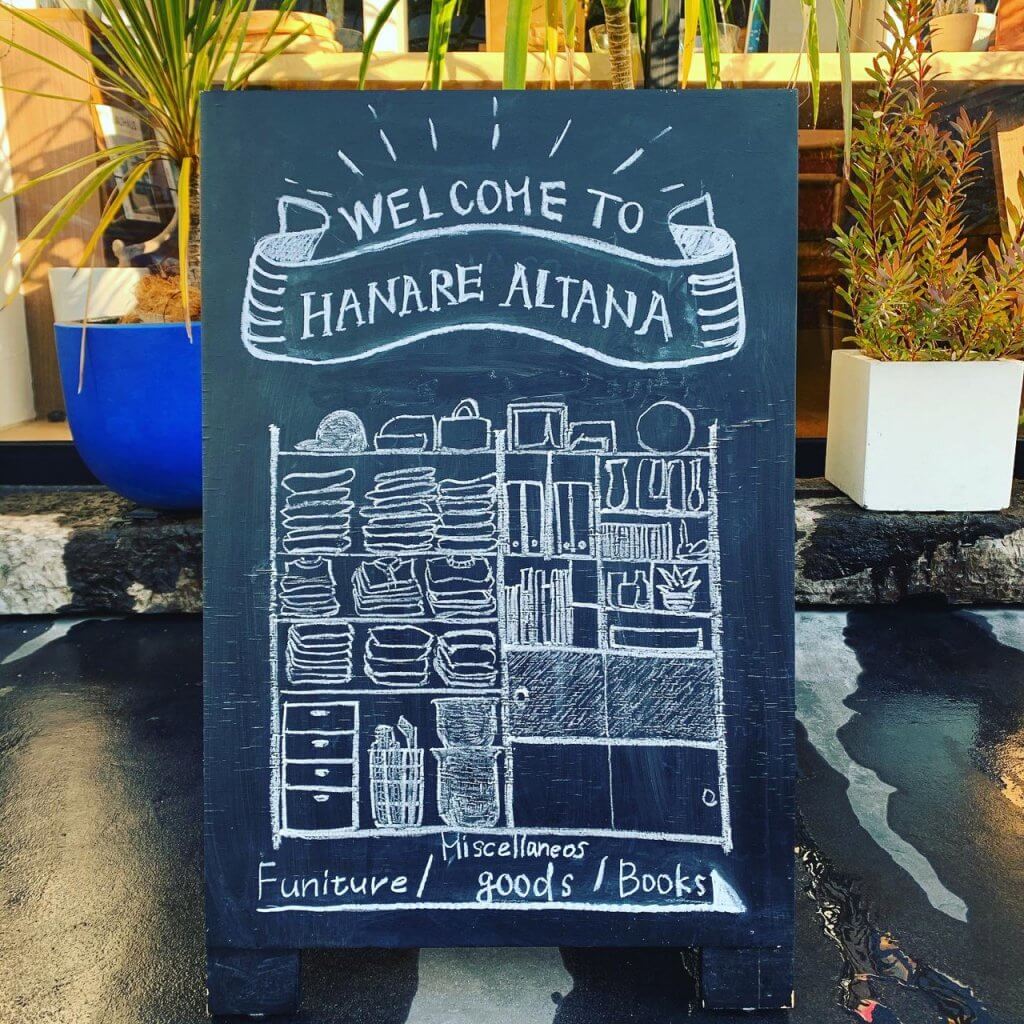 WELCOME TO
HANARE ALTANA
Miscellaneos
Funiture / goods / Books